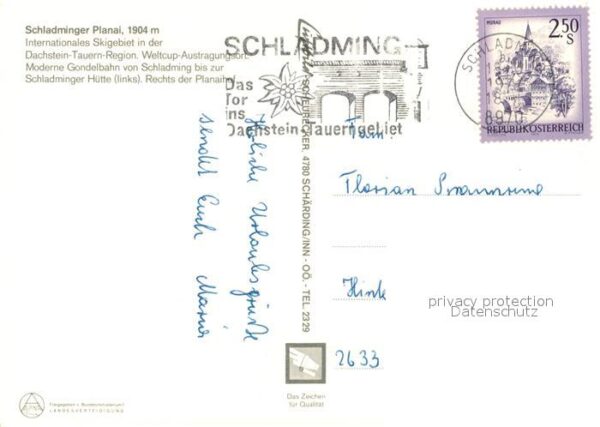 Schladminger Planai, 1904 m
Internationales Skigebiet in der
Dachstein-Tauern-Region. Weltcup-Austragungsort.
Moderne Gondelbahn von Schladming bis zur
Schladminger Hütte (links). Rechts der Planaihof
SCHLADMING
Das
Tor
ins
Dachstein-Tauerngebiet
MURAU
2.50 S
REPUBLIK ÖSTERREICH
SCHLADMING
8970
SCHEURECKER, 4780 SCHÄRDING/INN - OÖ. - TEL. 2329
Herzliche Urlaubsgrüße
sendet Euch Maria
Fam.
Florian
2633
privacy protection
Datenschutz
Das Zeichen
für Qualität
Freigegeben v. Bundesministerium f.
LANDESVERTEIDIGUNG